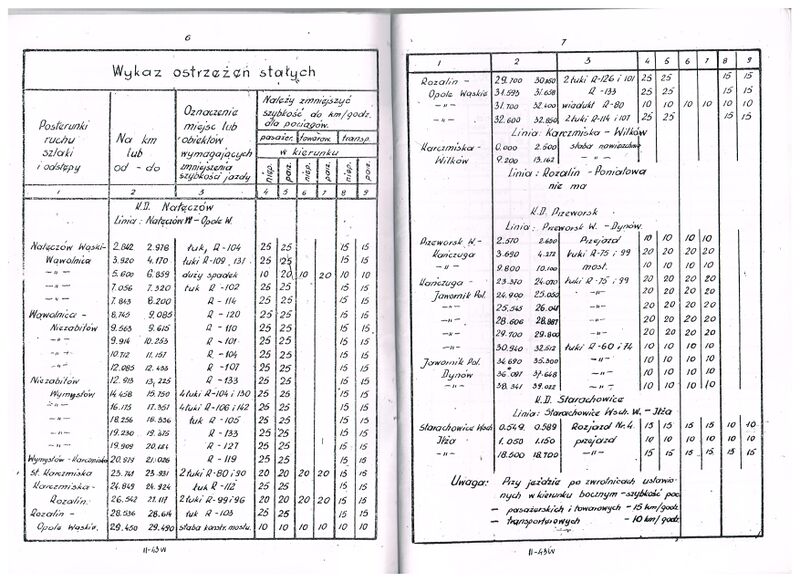 6
Wykaz ostrzeżeń stałych
Posterunki ruchu szlaki i odstępy
Na km lub od - do
Oznaczenie miejsc lub obiektów wymagających zmniejszenia szybkości jazdy
Należy zmniejszyć szybkość do km/godz. dla pociągów.
pasażer. towarow. transp.
w kierunku
niep. parz. niep. parz. niep. parz.
1 2 3 4 5 6 7 8 9
K.D. Nałęczów
Linia: Nałęczów W - Opole W.
Nałęczów Wąski- 2.842 2.976 łuk, R-104 25 25 15 15
Wąwolnica 3.920 4.170 łuki R-109, 131 25 25 15 15
-"- 5.600 6.859 duży spadek 10 20 10 20 10 10
-"- 7.056 7.320 łuk R-102 25 25 15 15
-"- 7.843 8.200 R-114 25 25 15 15
Wąwolnica- 8.745 9.085 R-120 25 25 15 15
Niezabitów 9.563 9.615 R-110 25 25 15 15
-"- 9.914 10.253 R-101 25 25 15 15
-"- 10.712 11.157 R-104 25 25 15 15
-"- 12.085 12.455 R-107 25 25 15 15
Niezabitów 12.913 13,225 R-133 25 25 15 15
Wymysłów 14.458 15.750 4 łuki R-104 i 130 25 25 15 15
-"- 16.175 17.357 4 łuki R-106 i 142 25 25 15 15
-"- 18.256 18.536 łuk R-105 25 25 15 15
-"- 19.230 19.475 R-133 25 25 15 15
-"- 19.909 R-127 25 25 15 15
Wymysłów-Karczmiska 20.979 21.026 R-119 25 25 15 15
st. Karczmiska 23.741 23.931 2 łuki R-80 i 90 20 20 20 20 15 15
Karczmiska- 24.849 24.924 łuk R-112 25 25 15 15
Rozalin. 26.542 27.117 2 łuki R-99 i 96 20 20 20 20 15 15
Rozalin - 28.536 28.614 łuk R-103 25 25 15 15
Opole Wąskie. 29.450 29.490 słaba konstr. mostu. 10 10 10 10 10 10
II-43W
7
1 2 3 4 5 6 7 8 9
Rozalin - 29.700 30.150 2 łuki R-126 i 101 25 25 15 15
Opole Wąskie 31.593 31.658 R-133 25 25 15 15
-"- 31.700 32.400 wiadukt R-80 10 10 10 10 10 10
-"- 32.600 32.850 2 łuki R-114 i 107 25 25 15 15
Linia: Karczmiska - Wilków
Karczmiska- 0.000 2.500 słaba nawierzchn.
Wilków 9.200 13.162 -"-
Linia: Rozalin - Poniatowa
nie ma
K.D. Przeworsk
Linia: Przeworsk W. - Dynów.
Przeworsk W.- 2.570 2.630 Przejazd 10 10 10 10
Kańczuga 3.690 4.372 łuki R-75 i 99 20 20 20 20
-"- 9.800 10.100 most. 10 10 10 10
Kańczuga- 23.370 24.070 łuki R-75 i 99 20 20 20 20
Jawornik Pol. 24.900 25.050 -"- 20 20 20 20
-"- 25.545 26.041 -"- 20 20 20 20
-"- 28.606 28.887 -"- 20 20 20 20
-"- 29.700 29.800 -"- 20 20 20 20
-"- 30.940 32.512 łuki R-60 i 74 10 10 10 10
Jawornik Pol. 34.690 35.300 -"- 10 10 10 10
Dynów 36.097 37.668 -"- 10 10 10 10
-"- 38.341 39.022 -"- 10 10 10 10
K.D. Starachowice
Linia: Starachowice Wsch. W. - Iłża
Starachowice Wsch 0.549 0.589 Rozjazd Nr. 4. 15 15 15 15 10 10
Iłża 1.050 1.150 przejazd 10 10 10 10 10 10
-"- 18.600 18.700 -"- 15 15 15 15 15 15
Uwaga: Przy jeździe po zwrotnicach ustawio-
nych w kierunku bocznym - szybkość poc.
- pasażerskich i towarowych - 15 km/godz.
- transporterowych - 10 km/godz.
II-43W